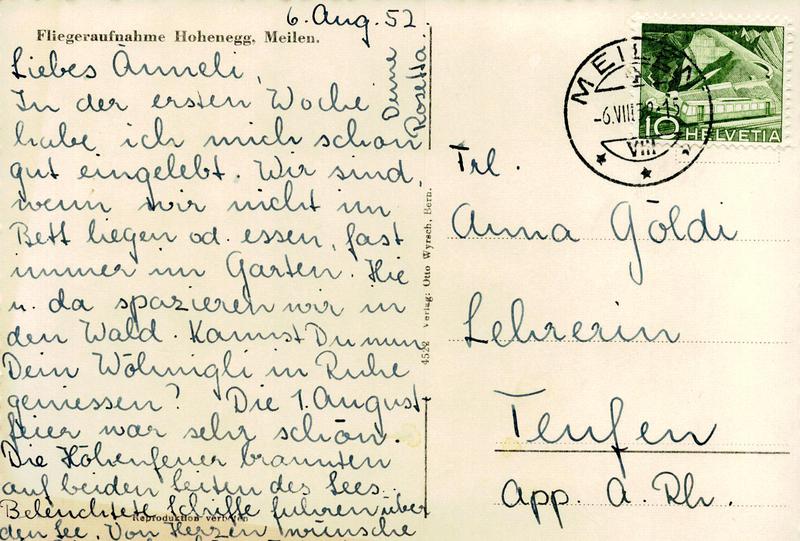 6. Aug. 52.
Fliegeraufnahme Hohenegg, Meilen.
Liebes Änneli,
In der ersten Woche
habe ich mich schon
gut eingelebt. Wir sind,
wenn wir nicht im
Bett liegen od. essen, fast
immer im Garten. Hie
u. da spazieren wir in
den Wald. Kannst Du nun
Dein Wöhnigli in Ruhe
geniessen? Die 1. August-
feier war sehr schön.
Die Höhenfeuer brannten
auf beiden Seiten des Sees.
Beleuchtete Schiffe fuhren über
den See. Von Herzen wünsche
Deine
Rosetta.
Reproduktion verboten
4522 Verlag: Otto Wyrsch, Bern.
MEILEN
-6.VIII.52-15
VIII
10 HELVETIA
Frl.
Anna Göldi
Lehrerin
Teufen
App. A. Rh.